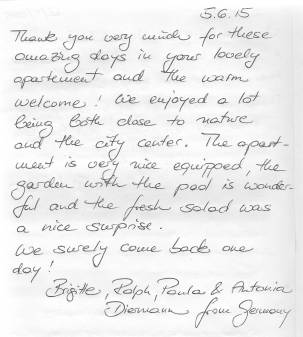 5.6.15
Thank you very much for these
amazing days in your lovely
apartement and the warm
welcome! We enjoyed a lot
being both close to nature
and the city center. The apart-
ment is very nice equipped, the
garden with the pool is wonder-
ful and the fresh salad was
a nice surprise.
We surely come back one
day!
Brigitte, Ralph, Paula & Antonia
Diemann from Germany